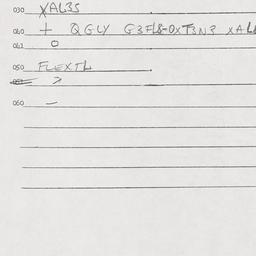 030 XAL3S
040 + QGLY G3FL8-OXT3N3 XAL
041 O
050 FLEXTL
>
060 —